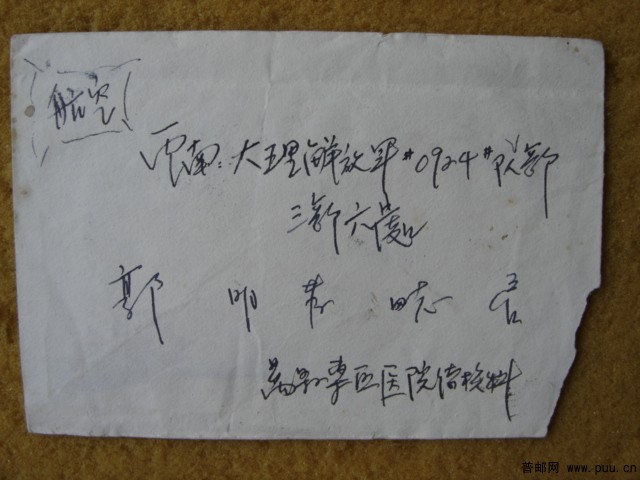 航空
云南:大理解放军#0924#队部
三部六号
郭明 同志 启
专区医院结核科
普邮网 www.puu.cn